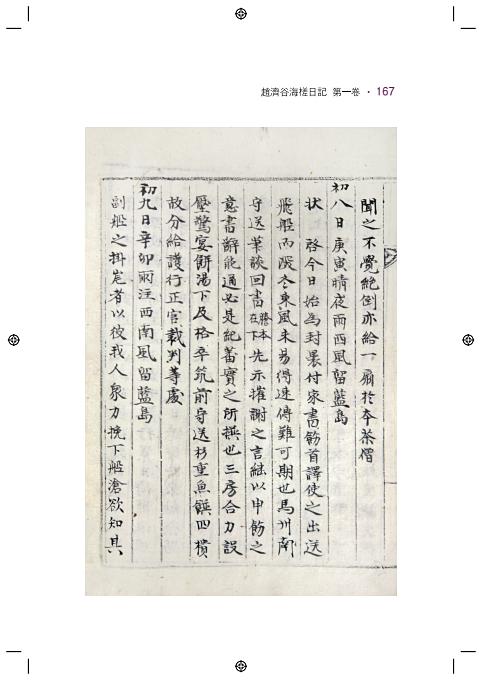 趙濟谷海槎日記 第一卷 · 167
聞之不覺絶倒亦給一扇於本茶僧
初八日庚寅晴夜雨西風留藍島
狀 啓今日始為封褁付家書飭首譯使之出送
飛舡而深冬東風未易得速傳難可期也馬州南
守送筆談回書在勝本下先示摧謝之言継以申飭之
意書辭能通必是紀蕃實之所撰也三房合力設
壓驚宴餠湯下及格卒筑前守送杉重魚饌四樻
故分給護行正官裁判等處
初九日辛卯雨注西南風留藍島
副舡之掛㞧者以彼我人衆力挽下船滄欲知其